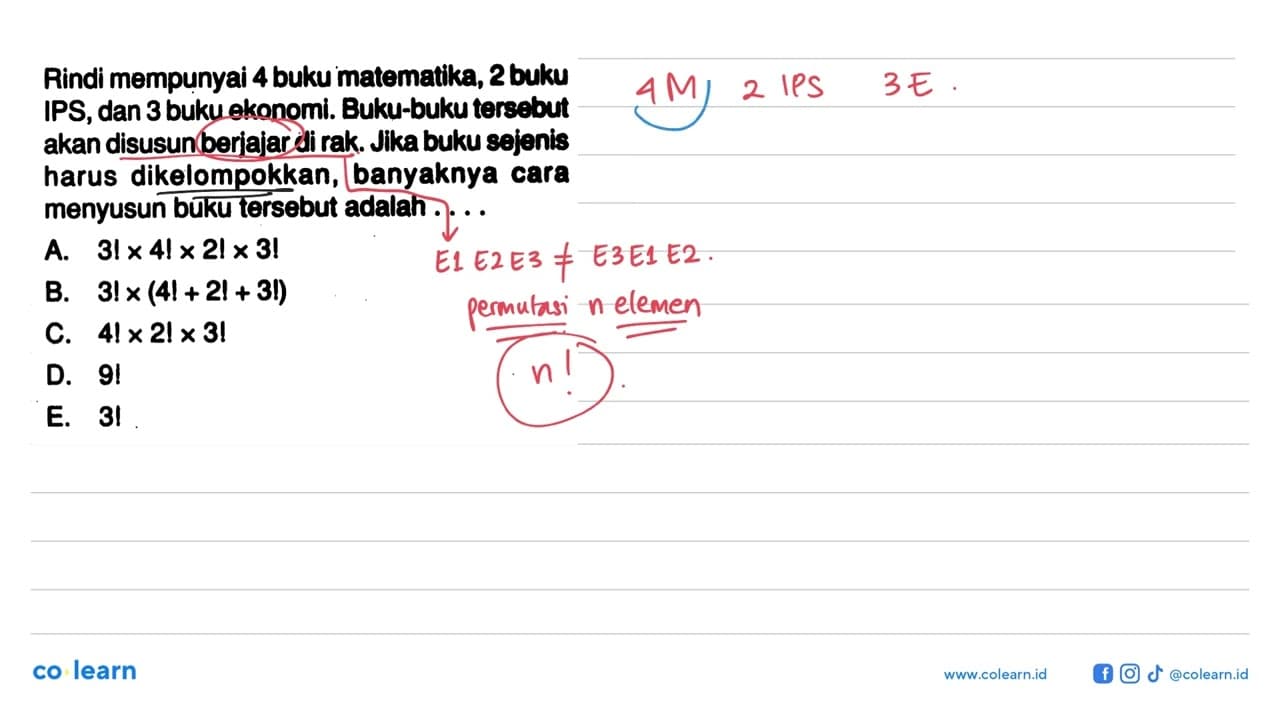 Rindi mempunyai 4 buku matematika, 2 buku
IPS, dan 3 buku ekonomi. Buku-buku tersebut
akan disusun berjajar di rak. Jika buku sejenis
harus dikelompokkan, banyaknya cara
menyusun buku tersebut adalah . . . .
A. 3! × 4! × 2! × 3!
B. 3! × (4! + 2! + 3!)
C. 4! × 2! × 3!
D. 9!
E. 3!
4M 2 IPS 3E .
E1 E2 E3 ≠ E3 E1 E2 .
permutasi n elemen
n!
co learn
www.colearn.id
@colearn.id